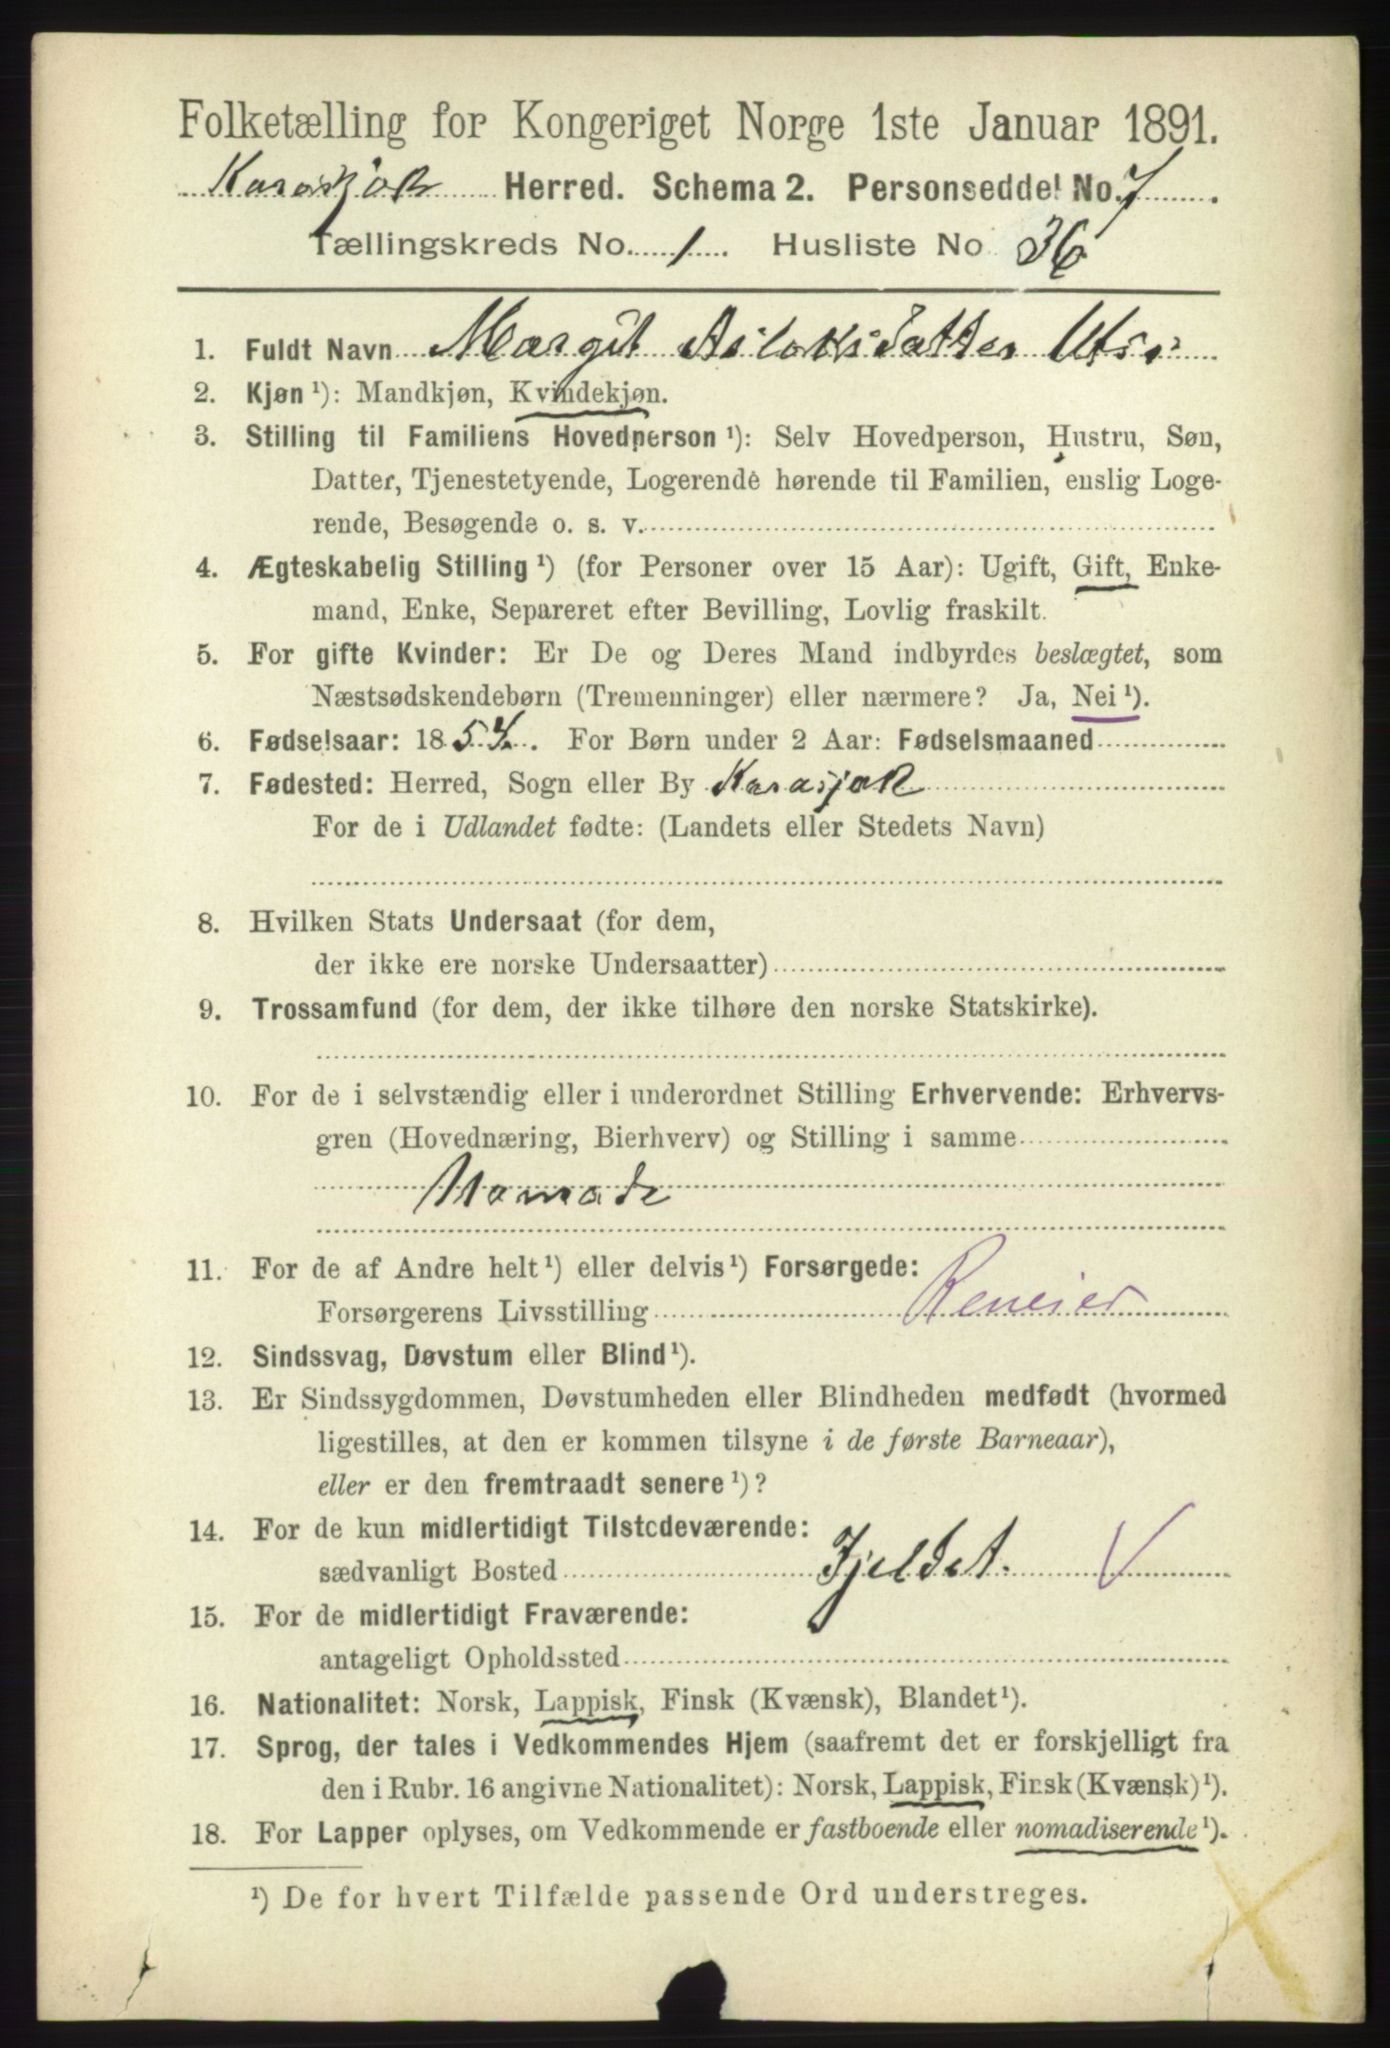 Folketælling for Kongeriget Norge 1ste Januar 1891.
Karasjok Herred. Schema 2. Personseddel No. 7.
Tællingskreds No. 1. Husliste No 36
1. Fuldt Navn Margit Aslaksdatter Utsi
2. Kjøn ¹): Mandkjøn, Kvindekjøn.
3. Stilling til Familiens Hovedperson ¹): Selv Hovedperson, Hustru, Søn,
Datter, Tjenestetyende, Logerende hørende til Familien, enslig Loge-
rende, Besøgende o. s. v.
4. Ægteskabelig Stilling ¹) (for Personer over 15 Aar): Ugift, Gift, Enke-
mand, Enke, Separeret efter Bevilling, Lovlig fraskilt.
5. For gifte Kvinder: Er De og Deres Mand indbyrdes beslægtet, som
Næstsødskendebørn (Tremenninger) eller nærmere? Ja, Nei ¹).
6. Fødselsaar: 1854. For Børn under 2 Aar: Fødselsmaaned
7. Fødested: Herred, Sogn eller By Karasjok
For de i Udlandet fødte: (Landets eller Stedets Navn)
8. Hvilken Stats Undersaat (for dem,
der ikke ere norske Undersaatter)
9. Trossamfund (for dem, der ikke tilhøre den norske Statskirke).
10. For de i selvstændig eller i underordnet Stilling Erhvervende: Erhvervs-
gren (Hovednæring, Bierhverv) og Stilling i samme
Nomade
11. For de af Andre helt ¹) eller delvis ¹) Forsørgede:
Forsørgerens Livsstilling Reneier
12. Sindssvag, Døvstum eller Blind ¹).
13. Er Sindssygdommen, Døvstumheden eller Blindheden medfødt (hvormed
ligestilles, at den er kommen tilsyne i de første Barneaar),
eller er den fremtraadt senere ¹)?
14. For de kun midlertidigt Tilstedeværende:
sædvanligt Bosted Fjeldet. V
15. For de midlertidigt Fraværende:
antageligt Opholdssted
16. Nationalitet: Norsk, Lappisk, Finsk (Kvænsk), Blandet ¹).
17. Sprog, der tales i Vedkommendes Hjem (saafremt det er forskjelligt fra
den i Rubr. 16 angivne Nationalitet): Norsk, Lappisk, Finsk (Kvænsk) ¹).
18. For Lapper oplyses, om Vedkommende er fastboende eller nomadiserende ¹).
¹) De for hvert Tilfælde passende Ord understreges.